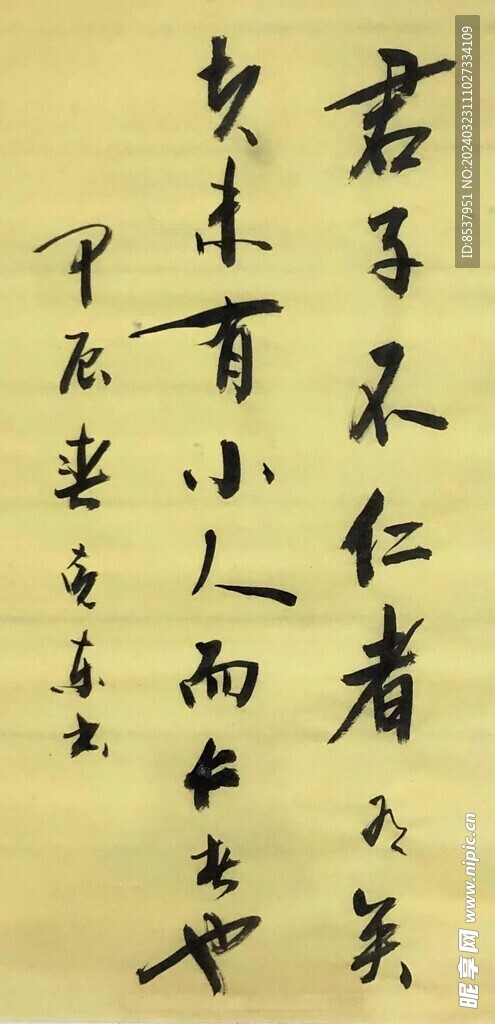 君子不仁者有矣
夫未有小人而仁者也
甲辰春克东书
ID:8537951 NO:20240323111027334109
昵享网 www.nipic.cn